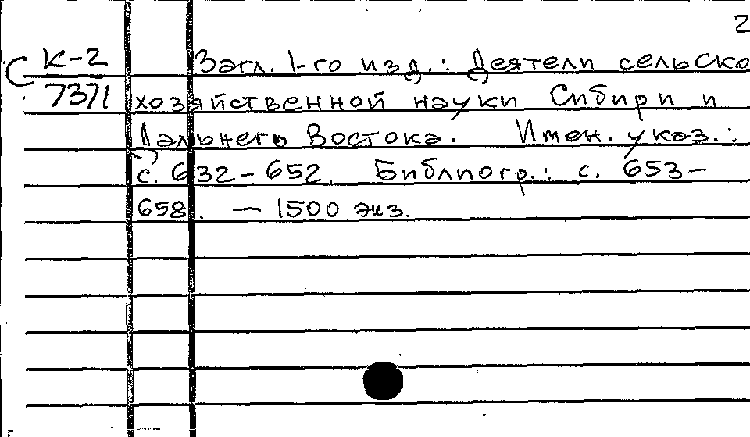 2
С К-2 Загл. 1-го изд.: Деятели сельско
7371 хозяйственной науки Сибири и
Дальнего Востока. Имен. указ.:
с. 632-652. Библиогр.: с. 653-
658. — 1500 экз.